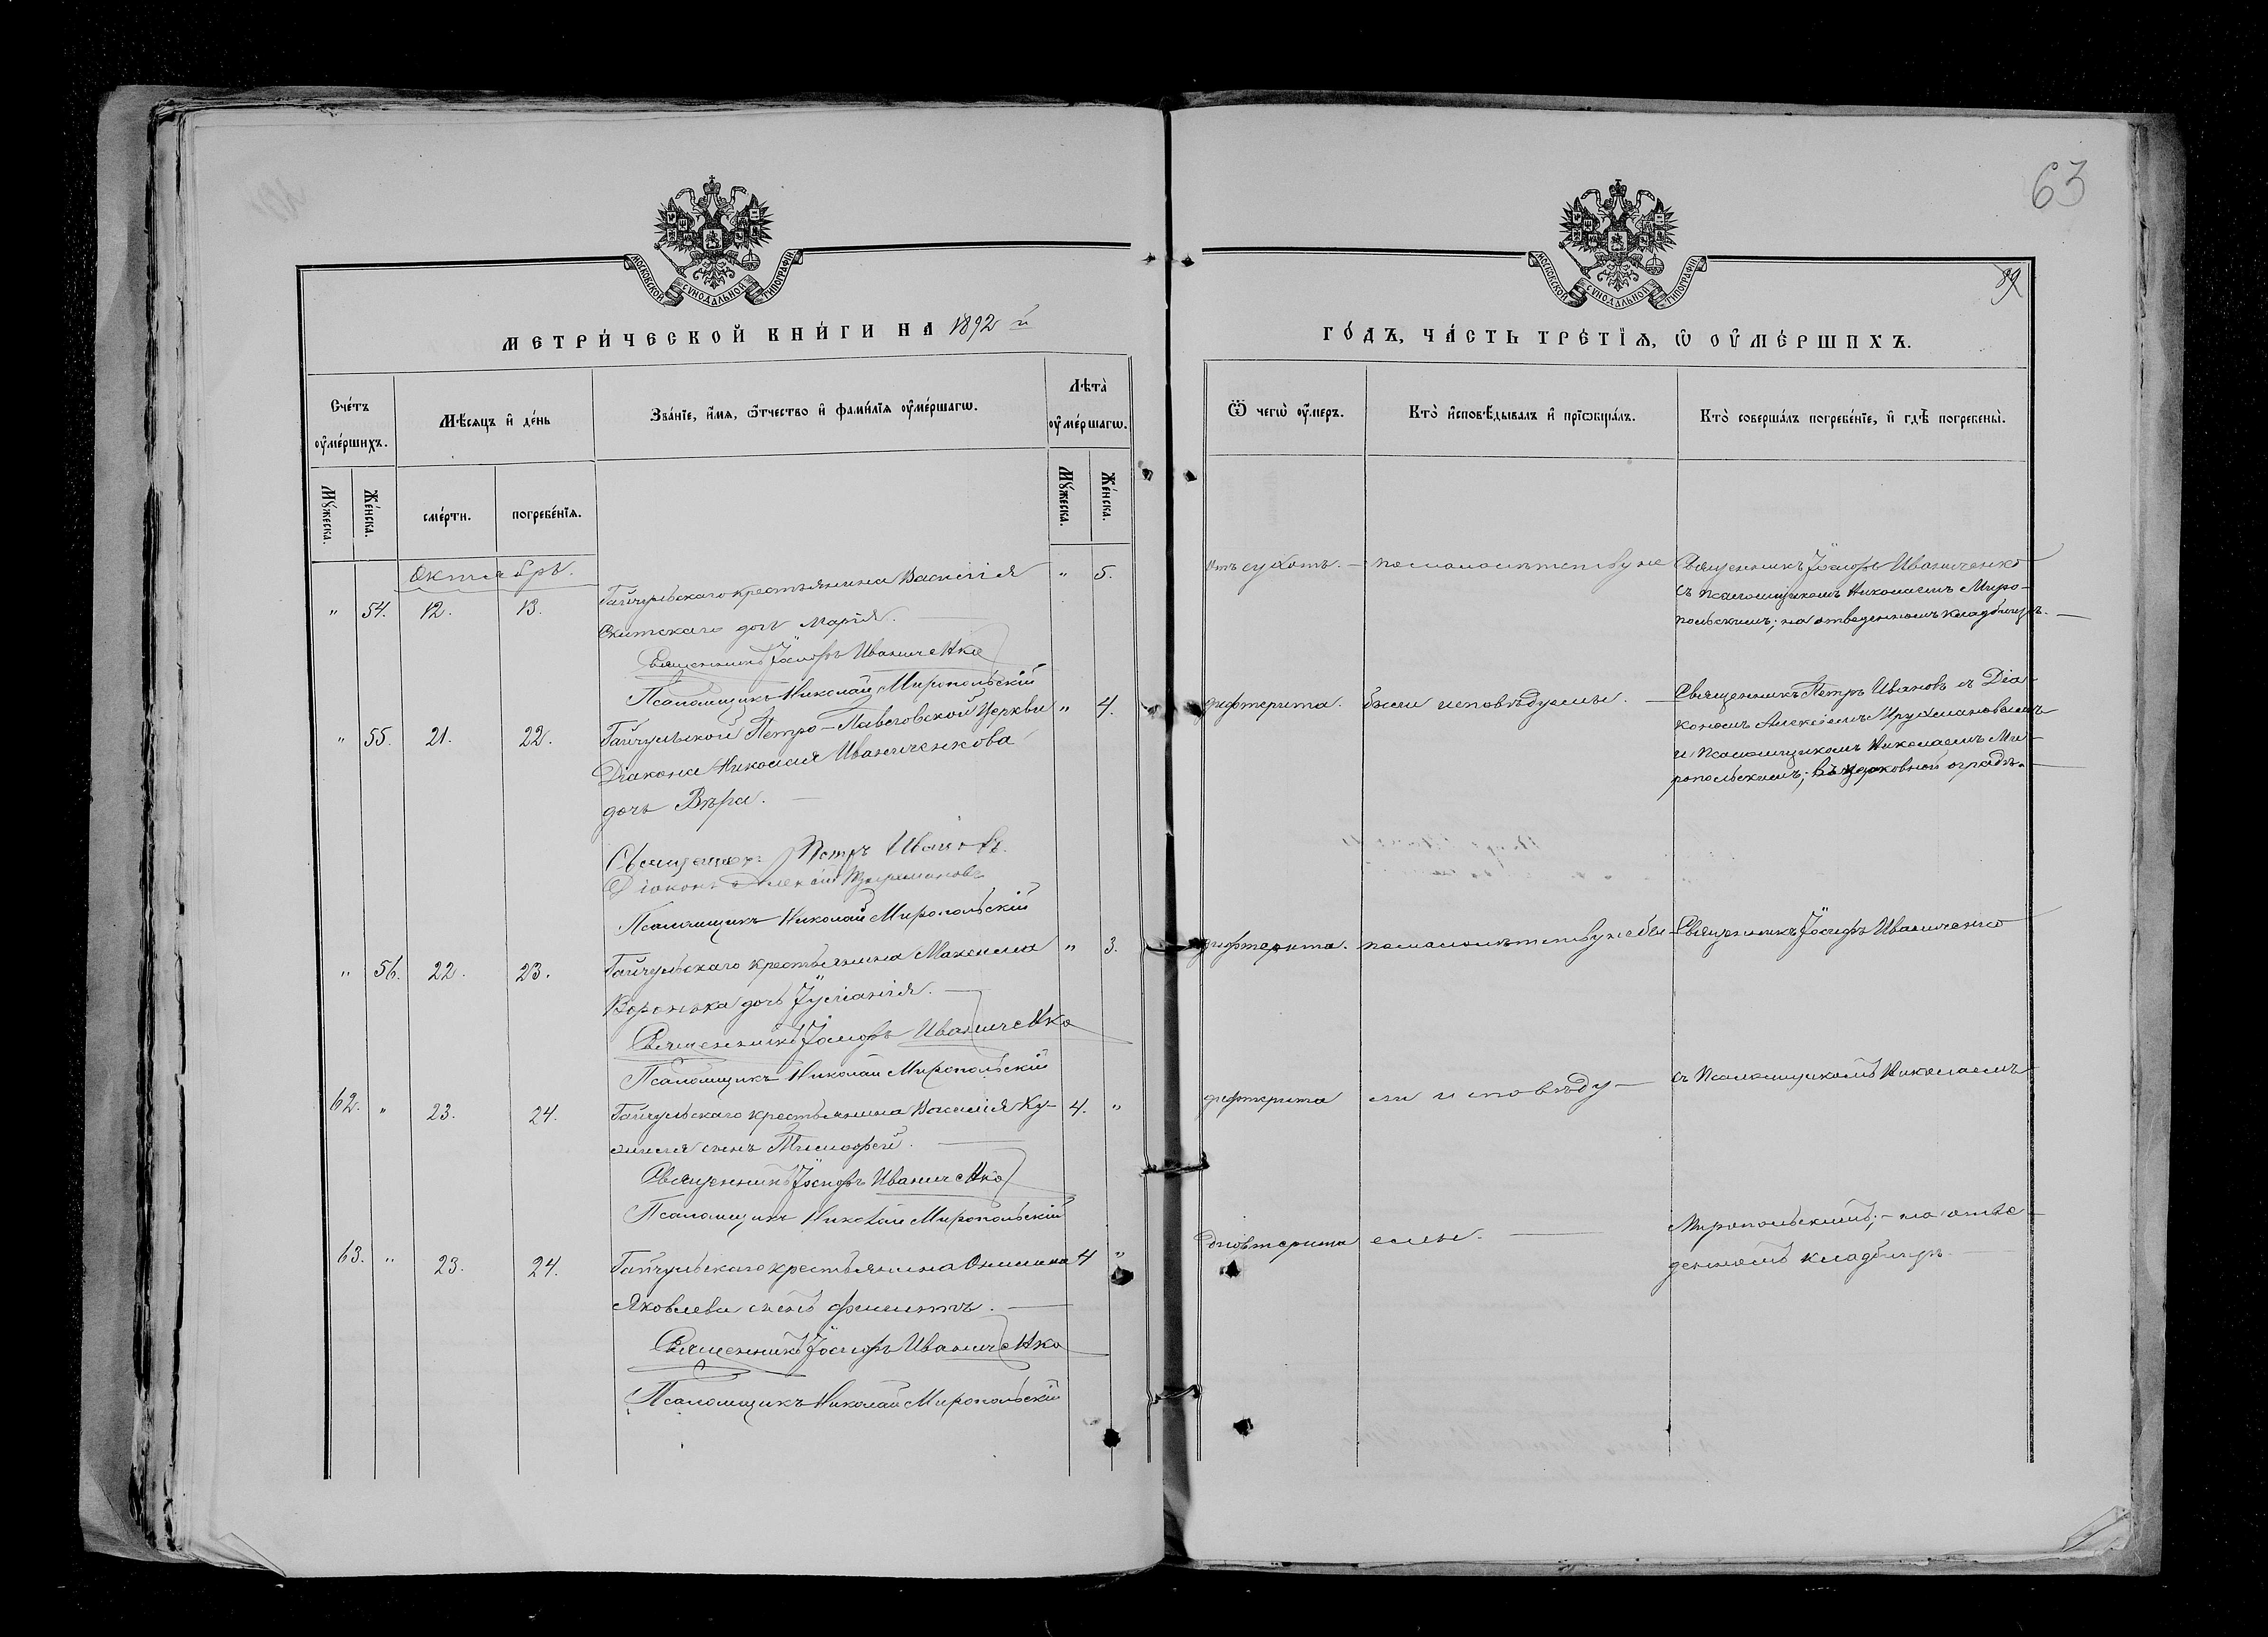 63
МОСКОВСКОЙ СѴНОДАЛЬНОЙ ТИПОГРАФІИ
МЕТРИ́ЧЕСКОЙ КНИ́ГИ НА 1892 й
Сче́тъ оу҆ме́ршихъ.
Мѣ́сяцъ и҆ де́нь
Зва́нїе, и҆́мѧ, ѻ҆́тчество и҆ фами́лїѧ оу҆ме́ршагѡ.
Лѣта̀ оу҆ме́ршагѡ.
Мꙋ́жеска.
Же́нска.
сме́рти.
погребе́нїѧ.
Мꙋ́жеска.
Же́нска.
Октябрь.
" 54. 12. 13. Гайчульскаго крестьянина Василія " 5.
Скитскаго дочь Марія.
Священникъ Іосифъ Иваниченко
Псаломщикъ Николай Миропольскій
" 55. 21. 22. Гайчульской Петро-Павловской Церкви " 4.
Діакона Николая Иваниченкова
дочь Вѣра.
Священникъ Петръ Ивановъ
Діаконъ Алексій
Псаломщикъ Николай Миропольскій
" 56. 22. 23. Гайчульскаго крестьянина Максима " 3.
Воронька дочь Іуліанія.
Священникъ Іосифъ Иваниченко
Псаломщикъ Николай Миропольскій
62. " 23. 24. Гайчульскаго крестьянина Василія Ку- 4. "
сынъ Тимофей.
Священникъ Іосифъ Иваниченко
Псаломщикъ Николай Миропольскій
63. " 23. 24. Гайчульскаго крестьянина 4 "
Яковлева сынъ Филиппъ.
Священникъ Іосифъ Иваниченко
Псаломщикъ Николай Миропольскій
МОСКОВСКОЙ СѴНОДАЛЬНОЙ ТИПОГРАФІИ
ГО́ДЪ, ЧА́СТЬ ТРЕ́ТЇѦ, Ѡ҆ ОУ҆МЕ́РШИХЪ.
Ѿ чегѡ̀ оу҆́меръ.
Кто̀ и҆сповѣ́дывалъ и҆ прїѡбща́лъ.
Кто̀ соверша́лъ погребе́нїе, и҆ гдѣ̀ погребены̀.
отъ сухотъ. по малолѣтству не Священникъ Іосифъ Иваниченко
съ псаломщикомъ Николаемъ Миро-
польскимъ; на отведенномъ кладбищѣ.
дифтерита. были исповѣдуемы. Священникъ Петръ Ивановъ съ Діа-
кономъ Алексіемъ
и Псаломщикомъ Николаемъ Ми-
ропольскимъ; въ церковной оградѣ.
дифтерита. по малолѣтству не бы- Священникъ Іосифъ Иваниченко
дифтерита ли исповѣду- съ Псаломщикомъ Николаемъ
дифтерита емы. Миропольскимъ; на отве-
денномъ кладбищѣ.